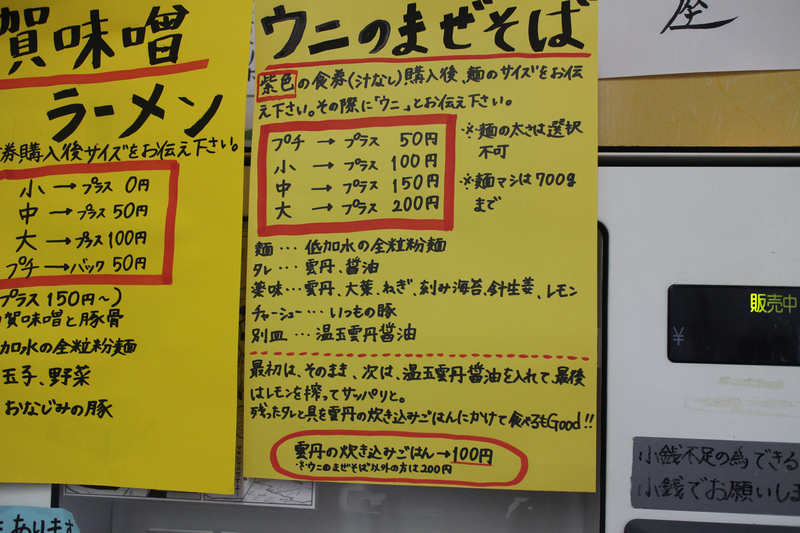 賀味噌
ラーメン
券購入後サイズをお伝え下さい。
小→プラス 0円
中→プラス 50円
大→プラス 100円
プチ→バック 50円
プラス 150円〜)
賀味噌と豚骨
加水の全粒粉麺
玉子、野菜
おなじみの豚
あります
ウニのまぜそば
紫色の食券(汁なし)購入後、麺のサイズをお伝
え下さい。その際に「ウニ」とお伝え下さい。
プチ → プラス 50円
小 → プラス 100円
中 → プラス 150円
大 → プラス 200円
※麺の太さは選択
不可
※麺マシは700g
まで
麺 … 低加水の全粒粉麺
タレ … 雲丹、醤油
薬味 … 雲丹、大葉、ねぎ、刻み海苔、針生姜、レモン
チャーシュー … いつもの豚
別皿 … 温玉雲丹醤油
最初は、そのまま、次は、温玉雲丹醤油を入れて、最後
はレモンを搾ってサッパリと。
残ったタレと具を雲丹の炊き込みごはんにかけて食べるもGood!!
雲丹の炊き込みごはん→100円
※ウニのまぜそば以外の方は200円
座
販売中
¥
小銭不足の為できる
小銭でお願いしま